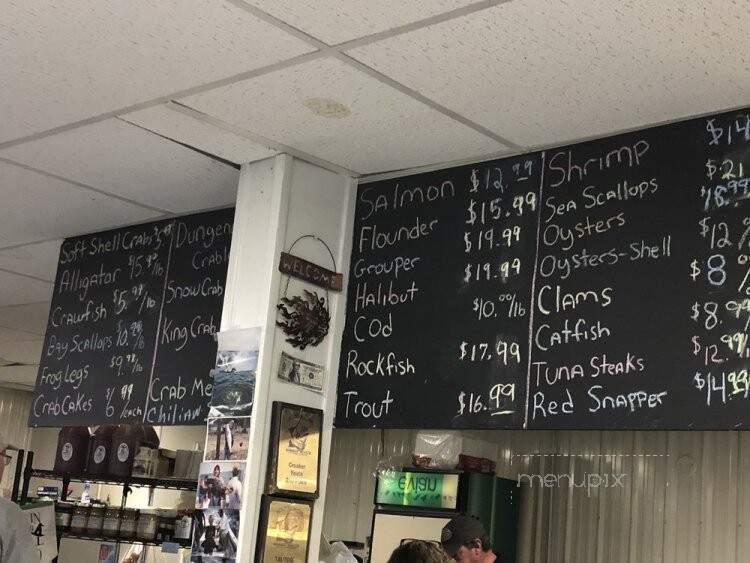 Soft Shell Crabs
Alligator
Crawfish $5.99/lb
Bay Scallops 10.99/lb
Frog Legs 9.99/lb
CrabCakes $6.99/each
Dungen
Crab
Snow Crab
King Crab
Crab Me
Chilian
WELCOME
SAlmon $12.99
Flounder $15.99
Grouper $19.99
HAlibut $19.99
COd $10.99/lb
Rockfish $17.99
Trout $16.99
Shrimp $14
Sea Scallops $21
Oysters 18.99
Oysters-Shell $12
Clams $8
Catfish $8.99
TUNA STeaks $12.99
Red SnAPPer $14.99
Croaker
Youth
evian
menupix